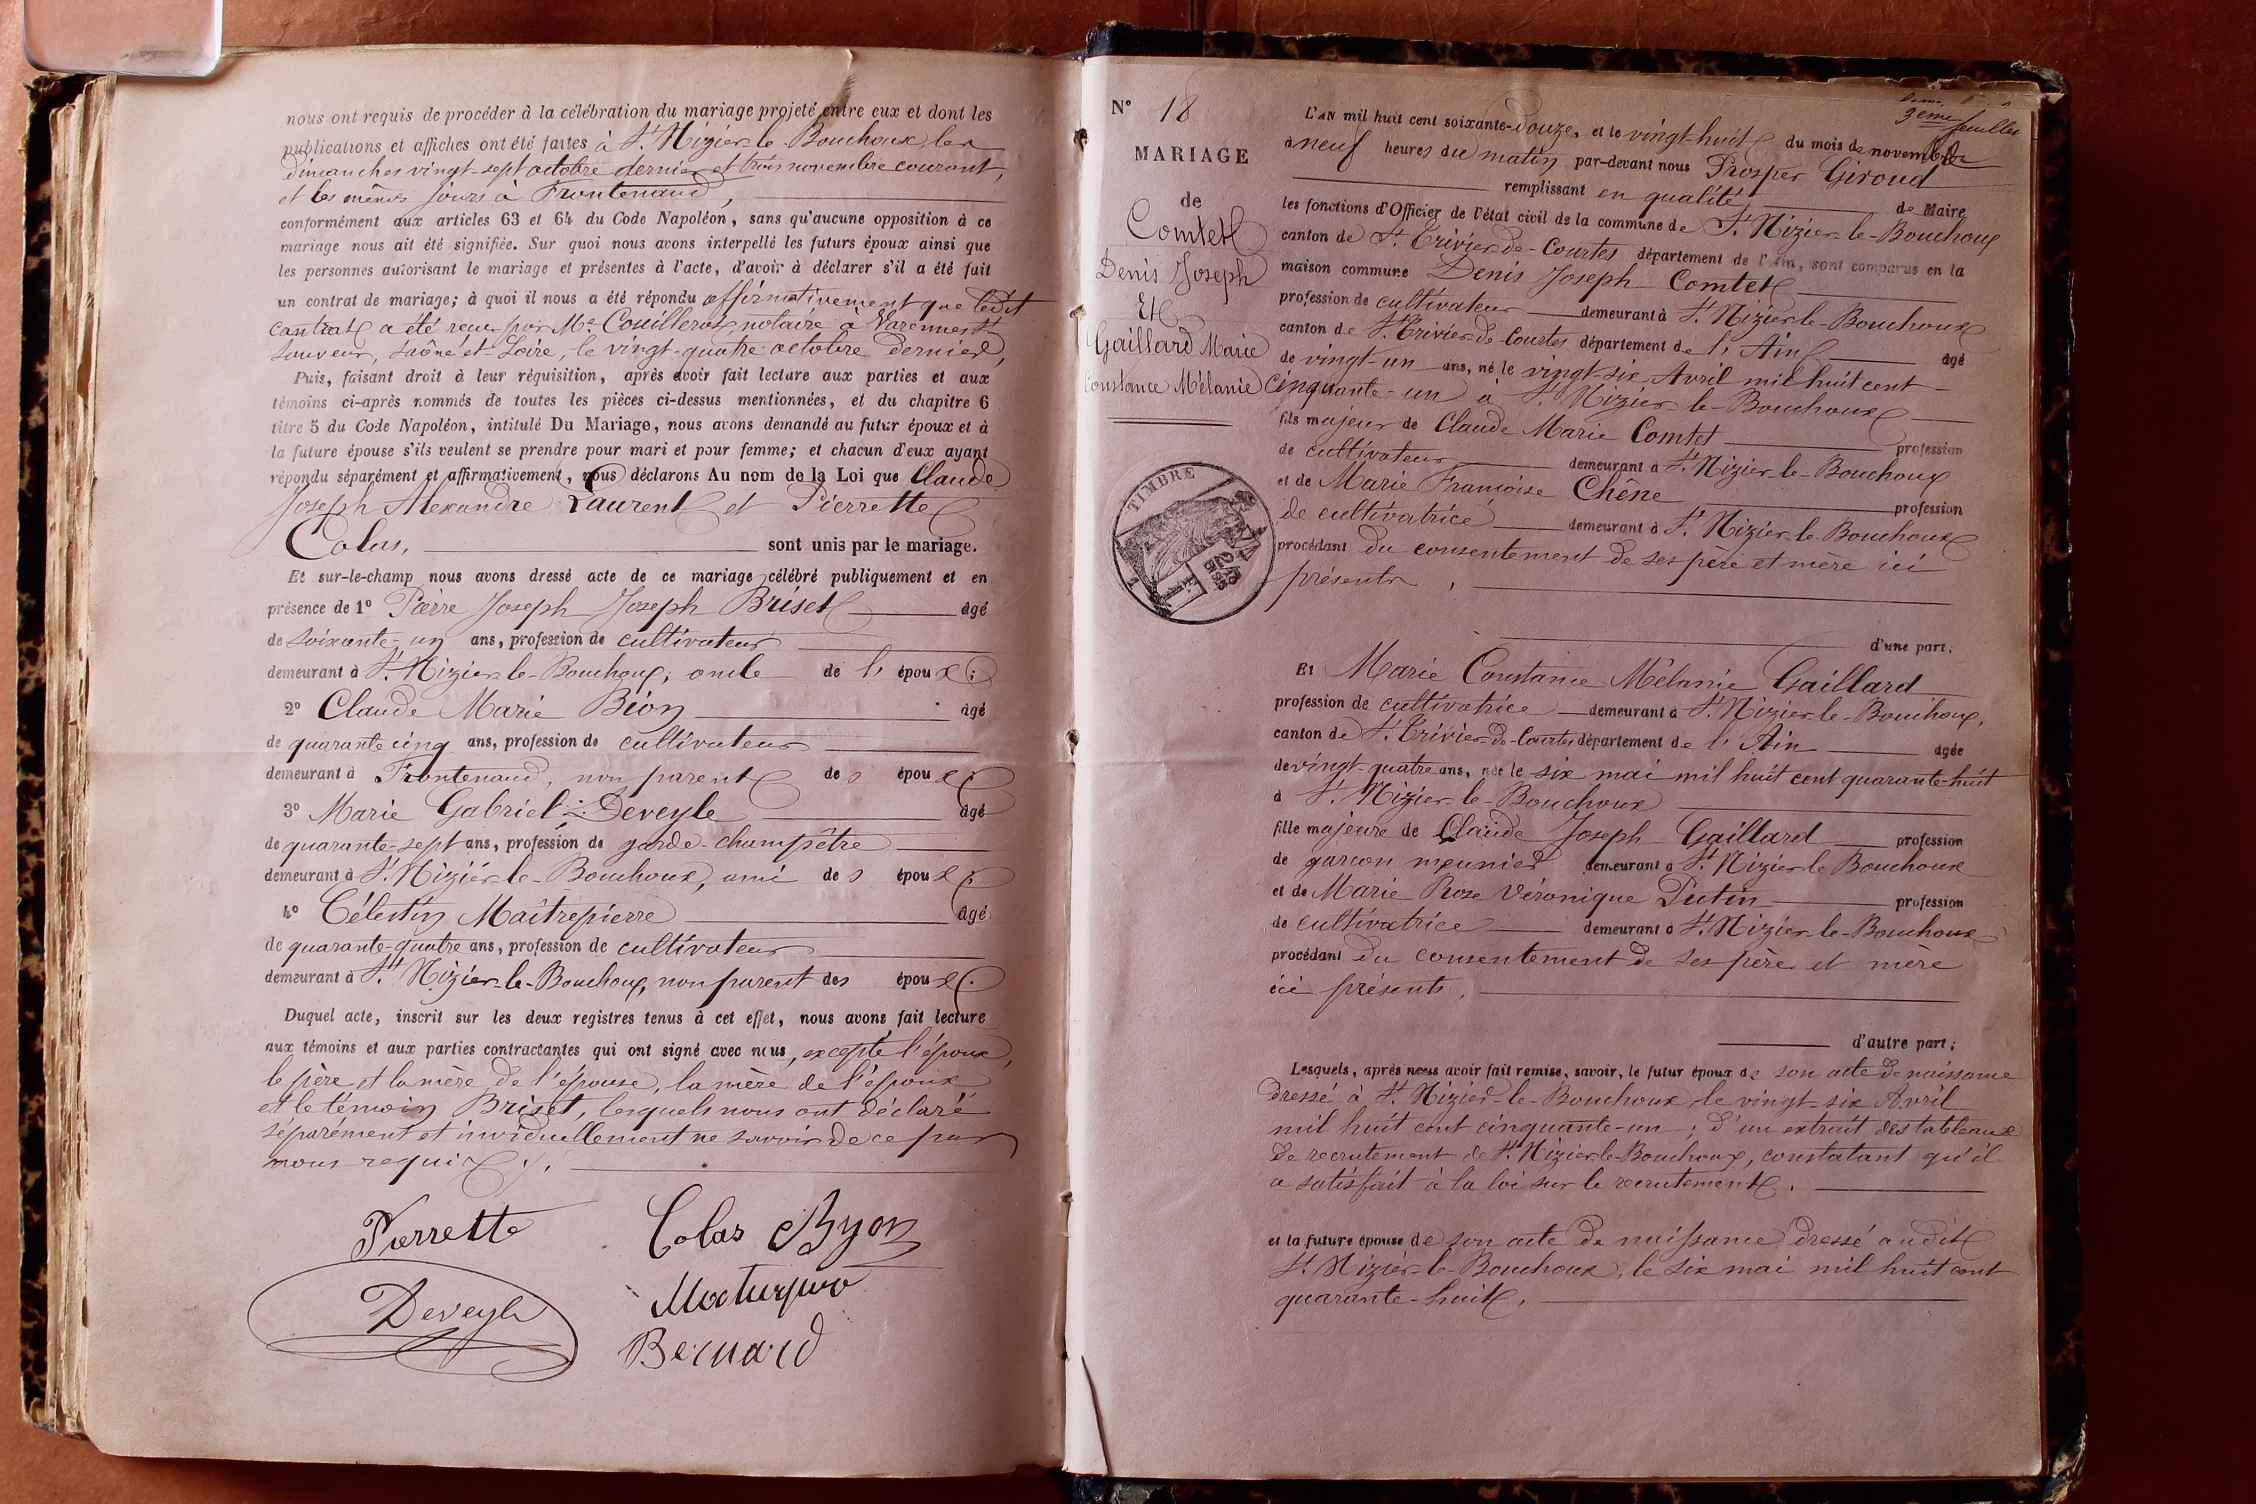 nous ont requis de procéder à la célébration du mariage projeté entre eux et dont les
publications et affiches ont été faites à St Nizier-le-Bouchoux, les
Dimanches vingt-sept octobre dernier et trois novembre courant,
et les mêmes jours à Frontenaud,
conformément aux articles 63 et 64 du Code Napoléon, sans qu'aucune opposition à ce
mariage nous ait été signifiée. Sur quoi nous avons interpellé les futurs époux ainsi que
les personnes autorisant le mariage et présentes à l'acte, d'avoir à déclarer s'il a été fait
un contrat de mariage; à quoi il nous a été répondu affirmativement que ledit
contrat a été reçu par Me Couillerot, notaire à Varennes St
Sauveur, Saône-et-Loire, le vingt-quatre octobre dernier,
Puis, faisant droit à leur réquisition, après avoir fait lecture aux parties et aux
témoins ci-après nommés de toutes les pièces ci-dessus mentionnées, et du chapitre 6
titre 5 du Code Napoléon, intitulé Du Mariage, nous avons demandé au futur époux et à
la future épouse s'ils veulent se prendre pour mari et pour femme; et chacun d'eux ayant
répondu séparément et affirmativement, nous déclarons Au nom de la Loi que Claude
Joseph Alexandre Laurent et Pierrette
Colas, sont unis par le mariage.
Et sur-le-champ nous avons dressé acte de ce mariage célébré publiquement et en
présence de 1° Pierre Joseph Joseph Briset âgé
de soixante-un ans, profession de cultivateur
demeurant à St Nizier-le-Bouchoux, oncle de l' époux;
2° Claude Marie Bion âgé
de quarante cinq ans, profession de cultivateur
demeurant à Frontenaud, non parent des époux;
3° Marie Gabriel Deveyle âgé
de quarante-sept ans, profession de garde-champêtre
demeurant à St Nizier-le-Bouchoux, ami des époux;
4° Célestin Maîtrepierre âgé
de quarante-quatre ans, profession de cultivateur
demeurant à St Nizier-le-Bouchoux, non parent des époux.
Duquel acte, inscrit sur les deux registres tenus à cet effet, nous avons fait lecture
aux témoins et aux parties contractantes qui ont signé avec nous, excepté l'époux,
le père et la mère de l'épouse, la mère de l'époux
et le témoin Briset, lesquels nous ont déclaré
séparément et inviduellement ne savoir de ce par
nous requis.
Pierrette Colas Byon
Deveyle
Bernard
N° 18
MARIAGE
de
Comtet
Denis Joseph
Et
Gaillard Marie
Constance Mélanie
TIMBRE
3eme feuillet
L'AN mil huit cent soixante-douze, et le vingt-huit du mois de novembre
à neuf heures du matin par-devant nous Prosper Giroud
remplissant en qualité de Maire
les fonctions d'Officier de l'état civil de la commune de St Nizier-le-Bouchoux
canton de St Trivier-de-Courtes département de l'Ain, sont comparus en la
maison commune Denis Joseph Comtet
profession de cultivateur demeurant à St Nizier-le-Bouchoux
canton de St Trivier-de-Courtes département de l'Ain âgé
de vingt-un ans, né le vingt-six Avril mil huit cent
cinquante-un à St Nizier-le-Bouchoux
fils majeur de Claude Marie Comtet profession
de cultivateur demeurant à St Nizier-le-Bouchoux
et de Marie Françoise Chêne profession
de cultivatrice demeurant à St Nizier-le-Bouchoux
procédant du consentement de ses père et mère ici
présents,
d'une part.
Et Marie Constance Mélanie Gaillard
profession de cultivatrice demeurant à St Nizier-le-Bouchoux,
canton de St Trivier-de-Courtes département de l'Ain âgée
de vingt-quatre ans, née le six mai mil huit cent quarante-huit
à St Nizier-le-Bouchoux
fille majeure de Claude Joseph Gaillard profession
de garçon meunier demeurant à St Nizier-le-Bouchoux
et de Marie Rose Véronique Putin profession
de cultivatrice demeurant à St Nizier-le-Bouchoux
procédant du consentement de ses père et mère
ici présents,
d'autre part;
Lesquels, après nous avoir fait remise, savoir, le futur époux de son acte de naissance
dressé à St Nizier-le-Bouchoux, le vingt-six Avril
mil huit cent cinquante-un; d'un extrait des tableaux
de recrutement de St Nizier-le-Bouchoux, constatant qu'il
a satisfait à la loi sur le recrutement.
et la future épouse de son acte de naissance dressé audit
St Nizier-le-Bouchoux, le six mai mil huit cent
quarante-huit,